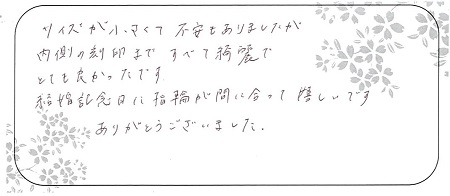 サイズが小さくて 不安もありましたが
内側の刻印まで すべて綺麗で
とても良かったです
結婚記念日に指輪が間に合って 嬉しいです
ありがとうございました.